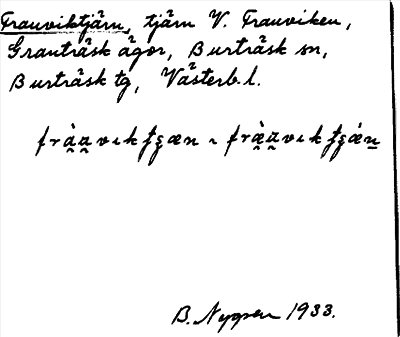 Frauviktjärn, tjärn V. Frauviken,
Granträsk ägor, Burträsk sn,
Burträsk tg, Västerb. l.
B. Nygren 1933.